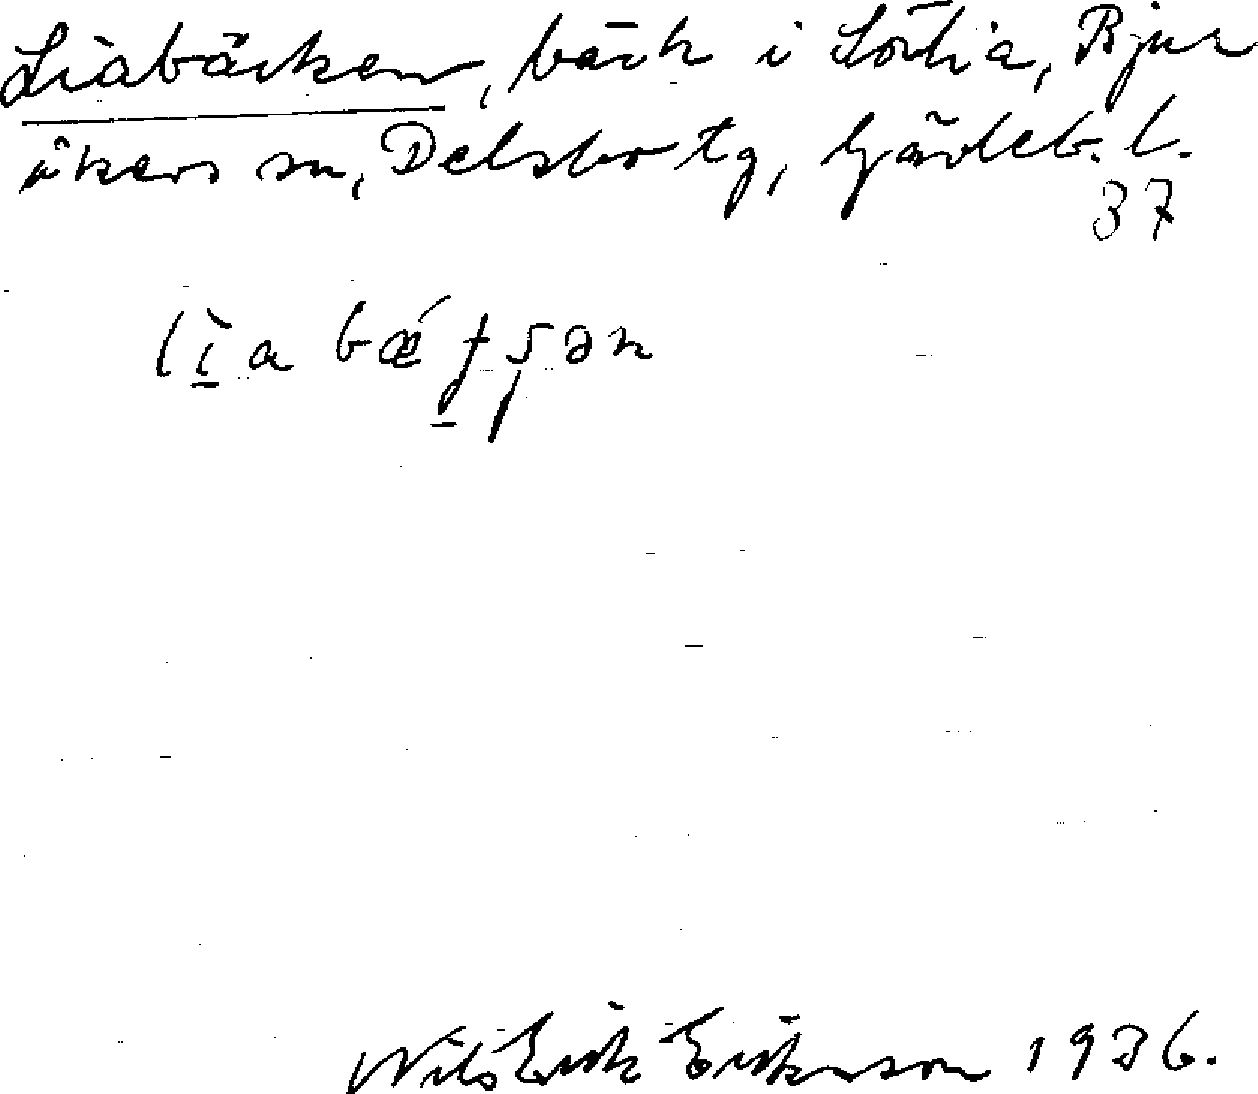 Liabäcken, bäck i Sörlia, Bjur
åkers sn, Delsbo tg, Gävleb. l.
37
lìa bǽʄʂən
Nils Erik Eriksson 1936.